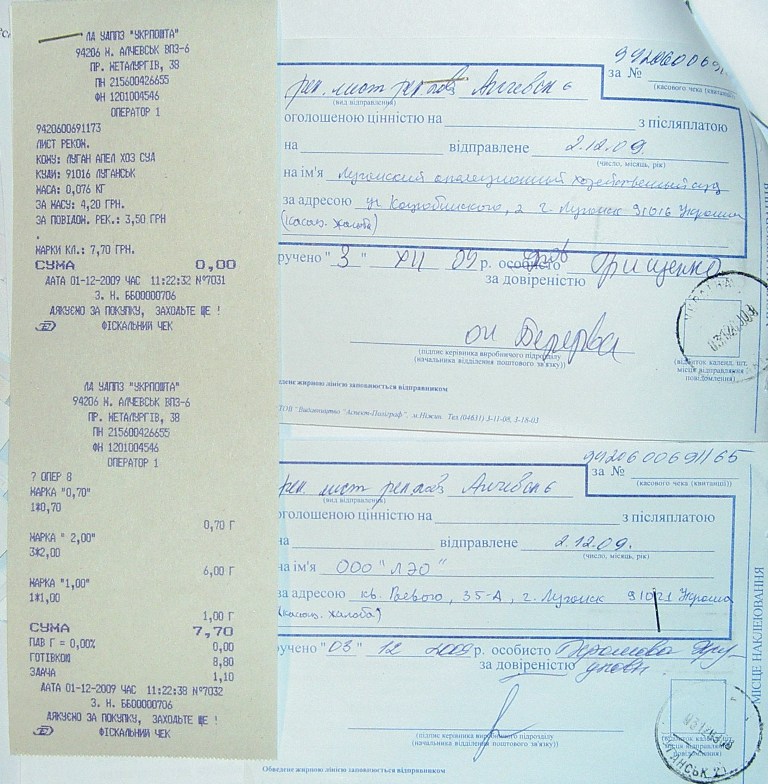 ЛА УДППЗ "УКРПОШТА"
94206 М. АЛЧЕВСЬК ВПЗ-6
ПР. МЕТАЛУРГІВ, 38
ПН 215600426655
ФН 1201004546
ОПЕРАТОР 1
9420600691173
ЛИСТ РЕКОМ.
КОМУ: ЛУГАН АПЕЛ ХОЗ СУД
КУДИ: 91016 ЛУГАНСЬК
МАСА: 0,076 КГ
ЗА МАСУ: 4,20 ГРН.
ЗА ПОВІДОМ. РЕК.: 3,50 ГРН
.
МАРКИ КЛ.: 7,70 ГРН.
СУМА 0,00
ДАТА 01-12-2009 ЧАС 11:22:32 №7031
З. Н. ББ00000706
ДЯКУЄМО ЗА ПОКУПКУ, ЗАХОДЬТЕ ЩЕ !
ФІСКАЛЬНИЙ ЧЕК
ЛА УДППЗ "УКРПОШТА"
94206 М. АЛЧЕВСЬК ВПЗ-6
ПР. МЕТАЛУРГІВ, 38
ПН 215600426655
ФН 1201004546
ОПЕРАТОР 1
? ОПЕР 8
МАРКА "0,70"
1*0,70
0,70 Г
МАРКА " 2,00"
3*2,00
6,00 Г
МАРКА "1,00"
1*1,00
1,00 Г
СУМА 7,70
ПДВ Г = 0,00% 0,00
ГОТІВКОЮ 8,80
ЗДАЧА 1,10
ДАТА 01-12-2009 ЧАС 11:22:38 №7032
З. Н. ББ00000706
ДЯКУЄМО ЗА ПОКУПКУ, ЗАХОДЬТЕ ЩЕ !
ФІСКАЛЬНИЙ ЧЕК
за №
(касового чека (квитанції))
рек. лист Алчевськ
(вид відправлення)
оголошеною цінністю на з післяплатою
на відправлене 2.12.09.
(число, місяць, рік)
на ім'я Луганский апелляционный хозяйственный суд
за адресою ул Коцюбинского, 2 г. Луганск 91016 Украина
(касац. жалоба)
ручено "3" XII 09 р. особисто Грищенко
за довіреністю
(підпис керівника виробничого підрозділу
(начальника відділення поштового зв'язку))
(відбиток календ. шт.
місця відправлення
повідомлення)
дене жирною лінією заповнюється відправником
ТОВ "Видавництво "Аспект-Поліграф", м.Ніжин Тел (04631) 3-11-08, 3-18-03
9420600691165
за №
(касового чека (квитанції))
рек. лист Алчевськ
(вид відправлення)
оголошеною цінністю на з післяплатою
на відправлене 2.12.09.
(число, місяць, рік)
на ім'я ООО "ЛЭО"
за адресою кв. Гаевого, 35-А, г. Луганск 91021 Украина
(касац. жалоба)
ручено "03" 12 2009 р. особисто
за довіреністю
(підпис керівника виробничого підрозділу
(начальника відділення поштового зв'язку))
місця відправлення
повідомлення)
МІСЦЕ НАКЛЕЮВАННЯ
Обведене жирною лінією заповнюється відправником